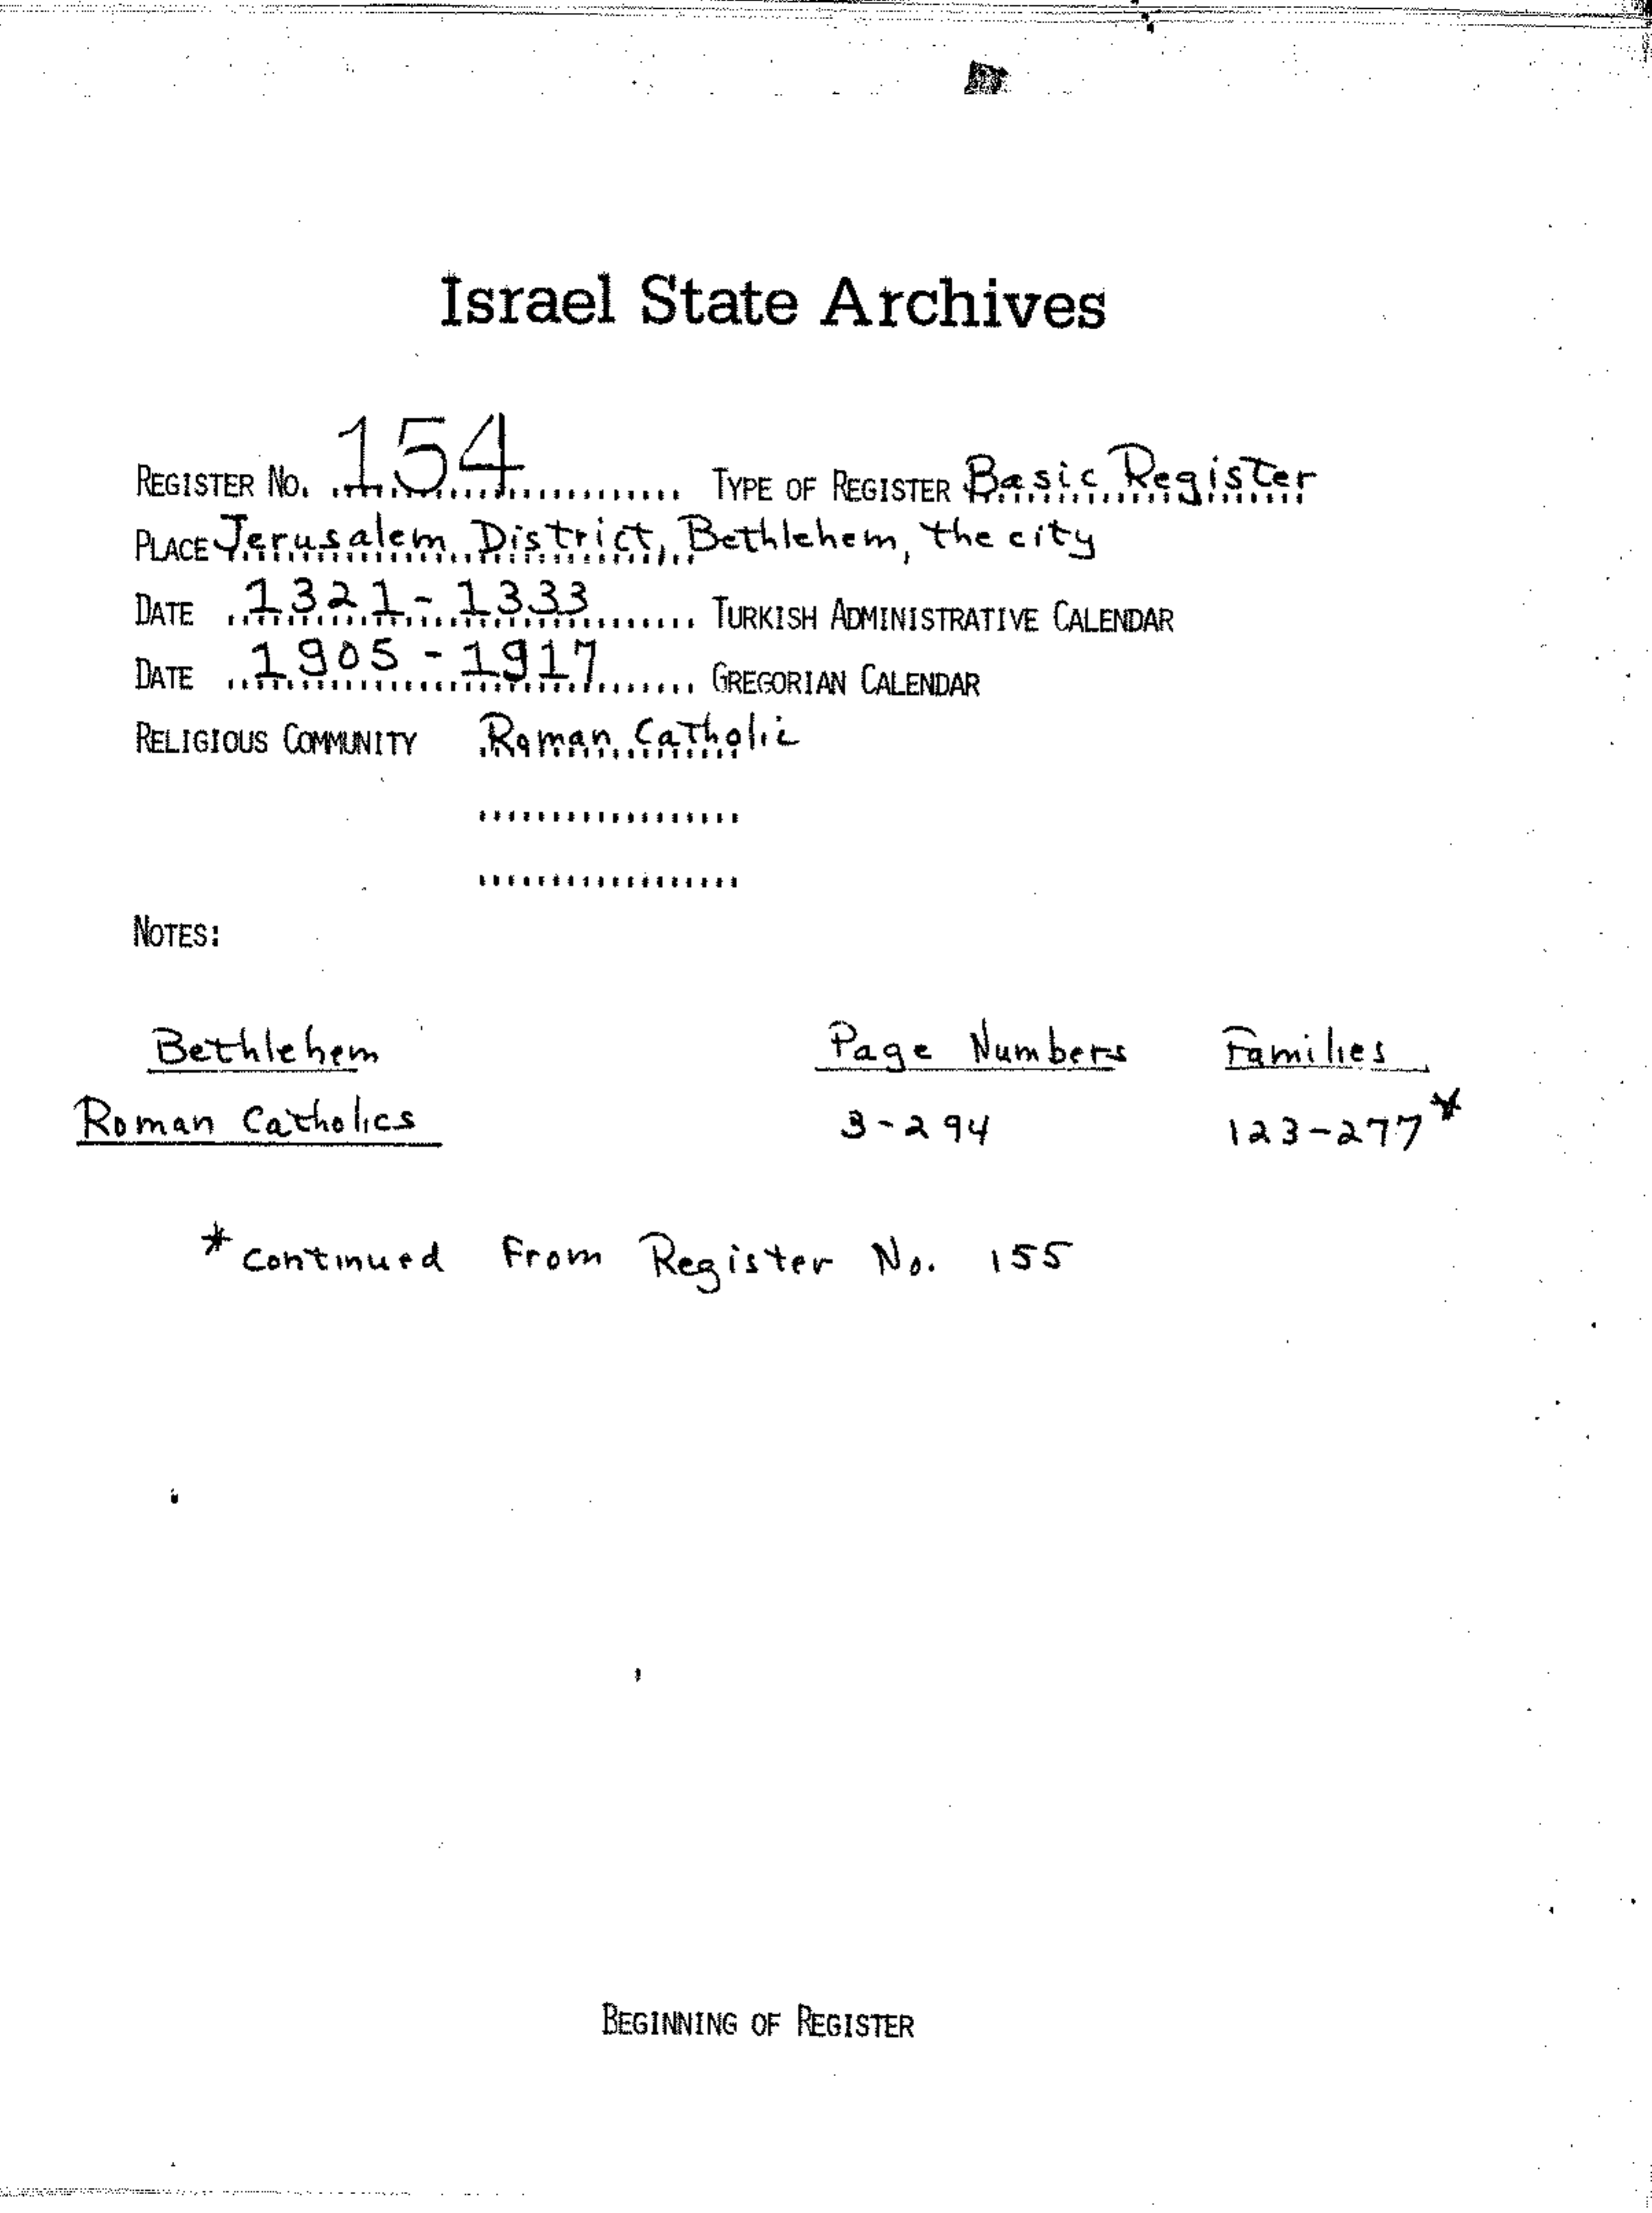 Israel State Archives
REGISTER NO. 154 TYPE OF REGISTER Basic Register
PLACE Jerusalem District, Bethlehem, the city
DATE 1321-1333 TURKISH ADMINISTRATIVE CALENDAR
DATE 1905-1917 GREGORIAN CALENDAR
RELIGIOUS COMMUNITY Roman Catholic
NOTES:
Bethlehem Page Numbers Families
Roman Catholics 3-294 123-277*
*continued From Register No. 155
BEGINNING OF REGISTER